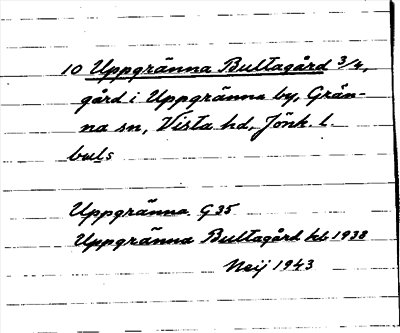 10 Uppgränna Bultagård 3/4,
gård i Uppgränna by, Grän-
na sn, Vista hd, Jönk. l.
buls
Uppgränna G35
Uppgränna Bultagård kb 1938
Neij 1943